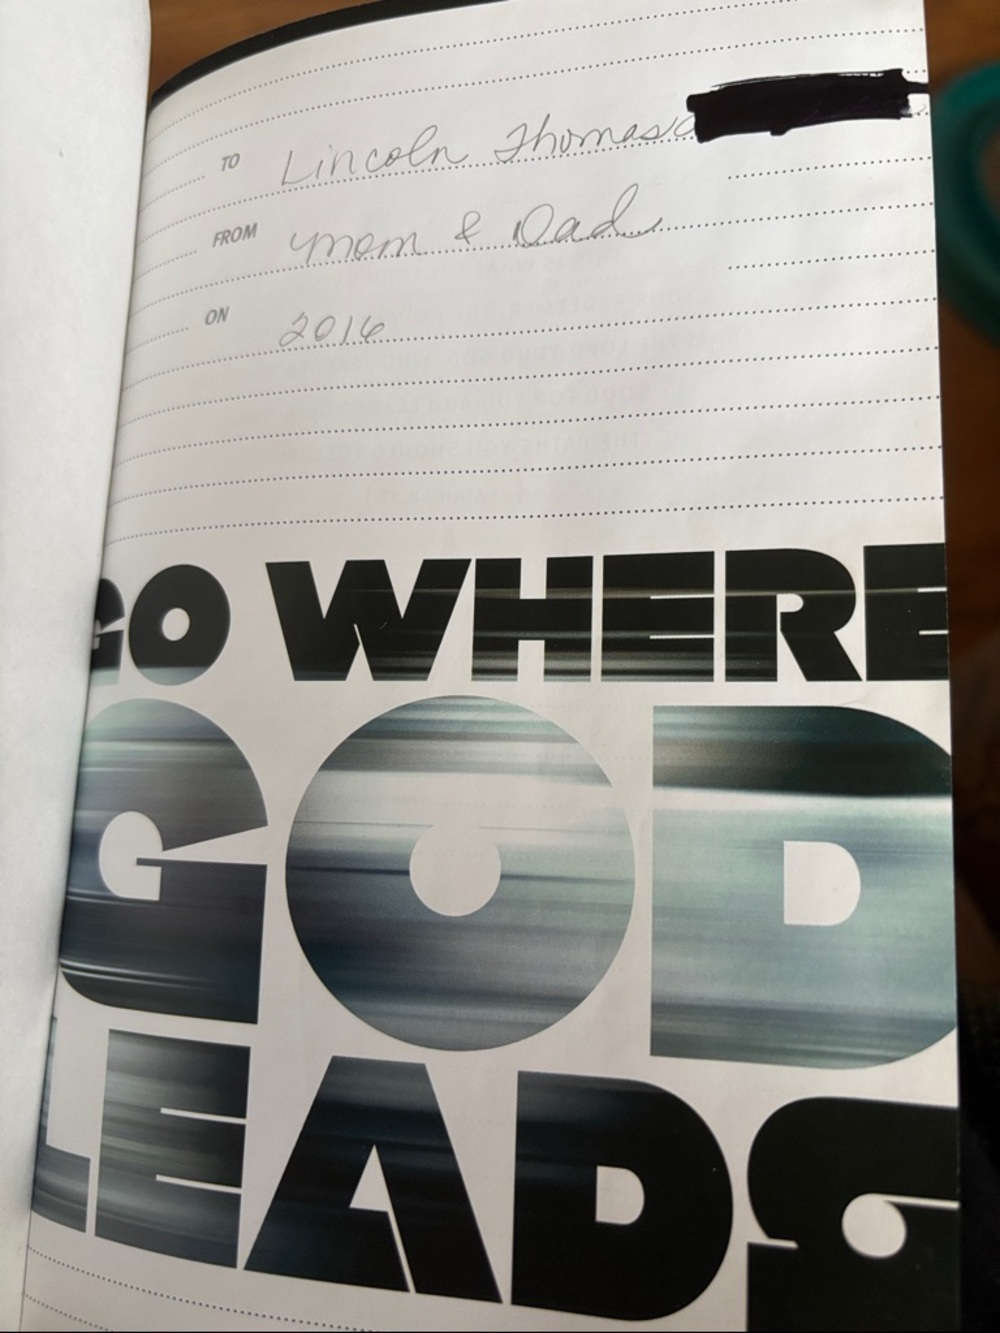 TO Lincoln Thomas
FROM Mom & Dad
ON 2016
GO WHERE
GOD
LEADS